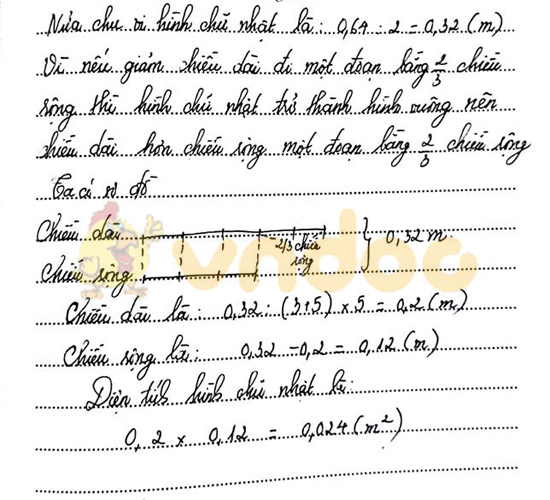 Nửa chu vi hình chữ nhật là: 0,64 : 2 = 0,32 (m)
Vì nếu giảm chiều dài đi một đoạn bằng 2/3 chiều
rộng thì hình chữ nhật trở thành hình vuông nên
chiều dài hơn chiều rộng một đoạn bằng 2/3 chiều rộng
Ta có sơ đồ
Chiều dài
2/3 chiều
rộng
0,32 m
Chiều rộng
vndoc
Chiều dài là: 0,32 : (3+5) x 5 = 0,2 (m)
Chiều rộng là: 0,32 - 0,2 = 0,12 (m)
Diện tích hình chữ nhật là:
0,2 x 0,12 = 0,024 (m²)